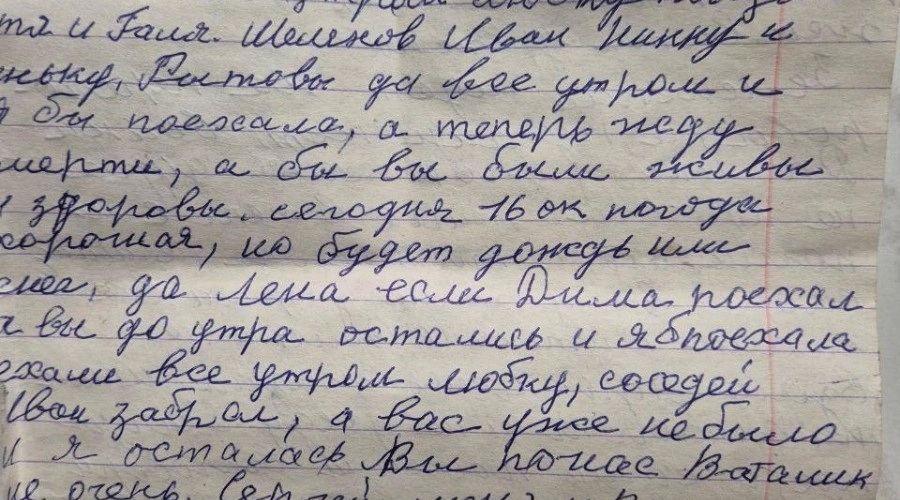 тя и Галя. Шеленов Иван Нинку и
ньку, Рытовы да все утром и
я бы поехала, а теперь жду
мерти, а бы вы были живы
и здоровы. сегодня 16 ок погода
хорошая, но будет дождь или
снег, да Лена если Дима поехал
а вы до утра остались и я б поехала
ехали все утром Любку, соседей
Иван забрал, а вас уже не было
и я осталась Вы
очень